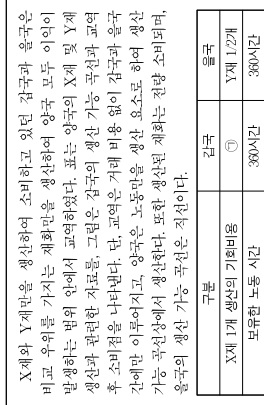 X재와 Y재만을 생산하여 소비하고 있던 갑국과 을국은
비교 우위를 가지는 재화만을 생산하여 양국 모두 이익이
발생하는 범위 안에서 교역하였다. 표는 양국의 X재 및 Y재
생산과 관련한 자료를, 그림은 갑국의 생산 가능 곡선과 교역
후 소비점을 나타낸다. 단, 교역은 거래 비용 없이 갑국과 을국
간에만 이루어지고, 양국은 노동만을 생산 요소로 하여 생산
가능 곡선상에서 생산한다. 또한 생산된 재화는 전량 소비되며,
을국의 생산 가능 곡선은 직선이다.
구분 갑국 을국
X재 1개 생산의 기회비용 ㉠ Y재 1/2개
보유한 노동 시간 360시간 360시간